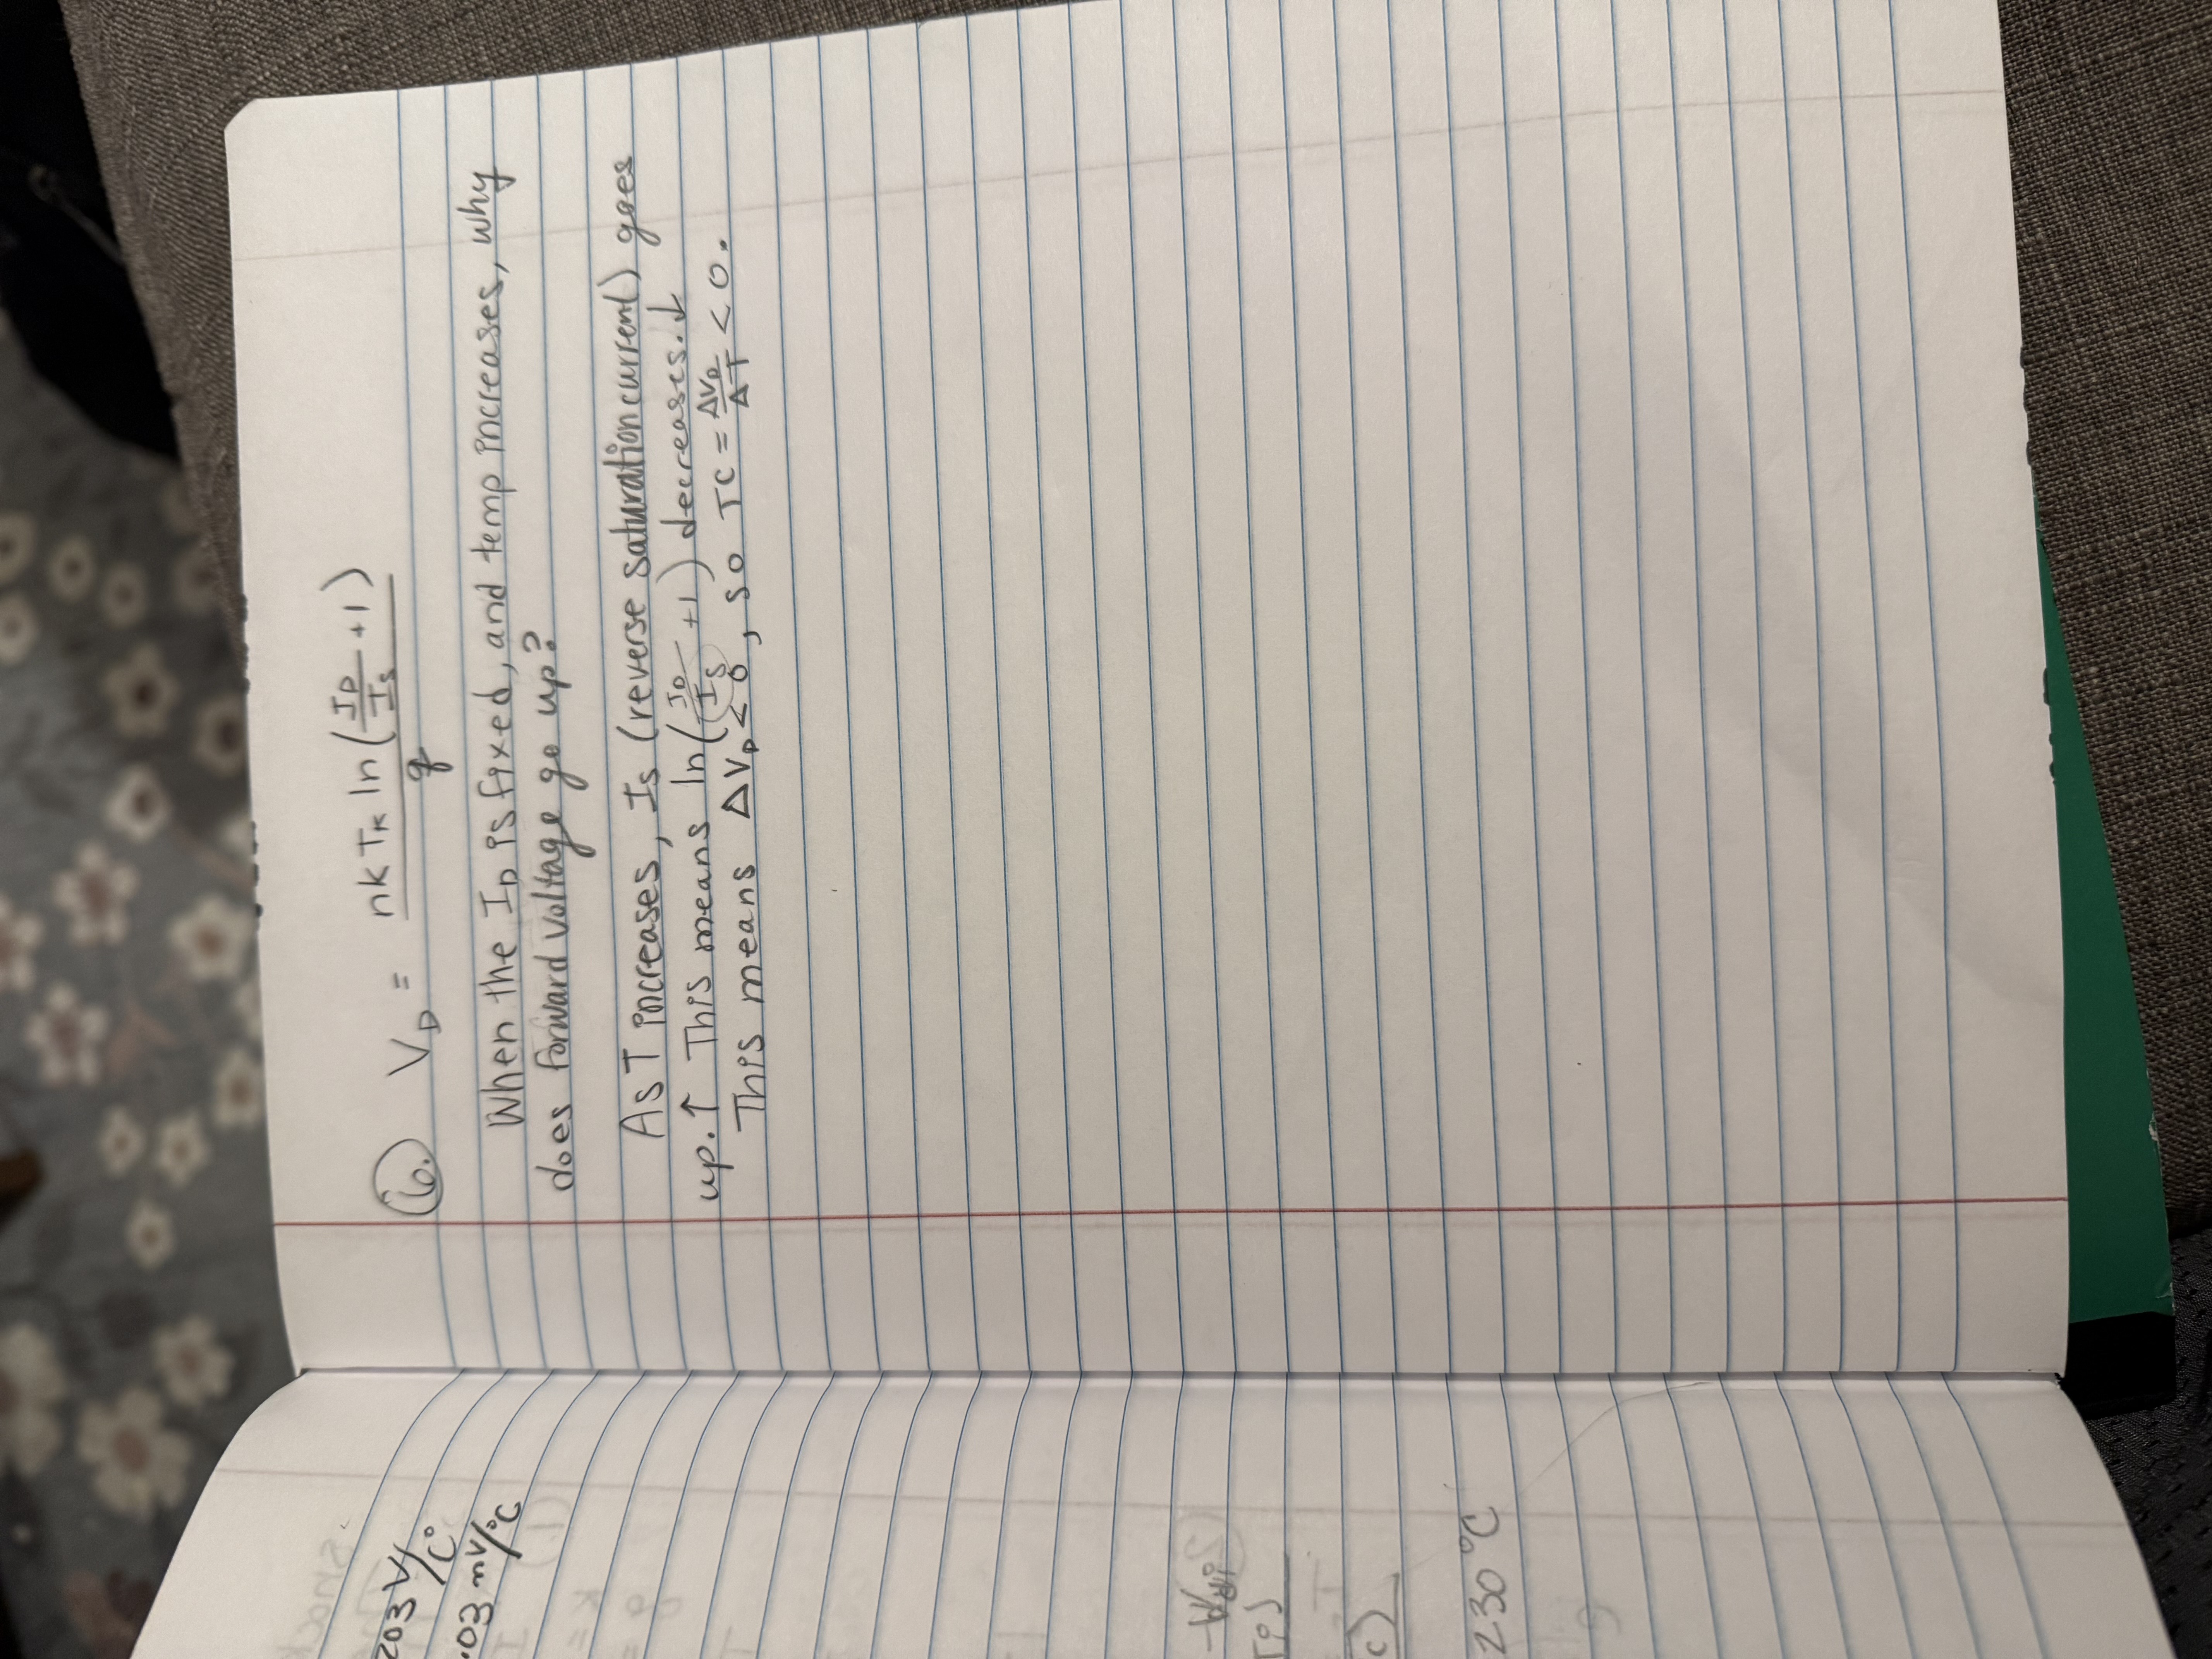 203 V/C°
.03 mV/°C
Tj)
c)
230 °C
6. V_D = nkT_K ln(I_D/I_S + 1) / q
When the I_D is fixed, and temp increases, why
does forward voltage go up?
As T increases, I_S (reverse saturation current) goes
up. ↑ This means ln(I_D/I_S + 1) decreases. ↓
This means ΔV_D < 0, so TC = ΔV_D/ΔT < 0.